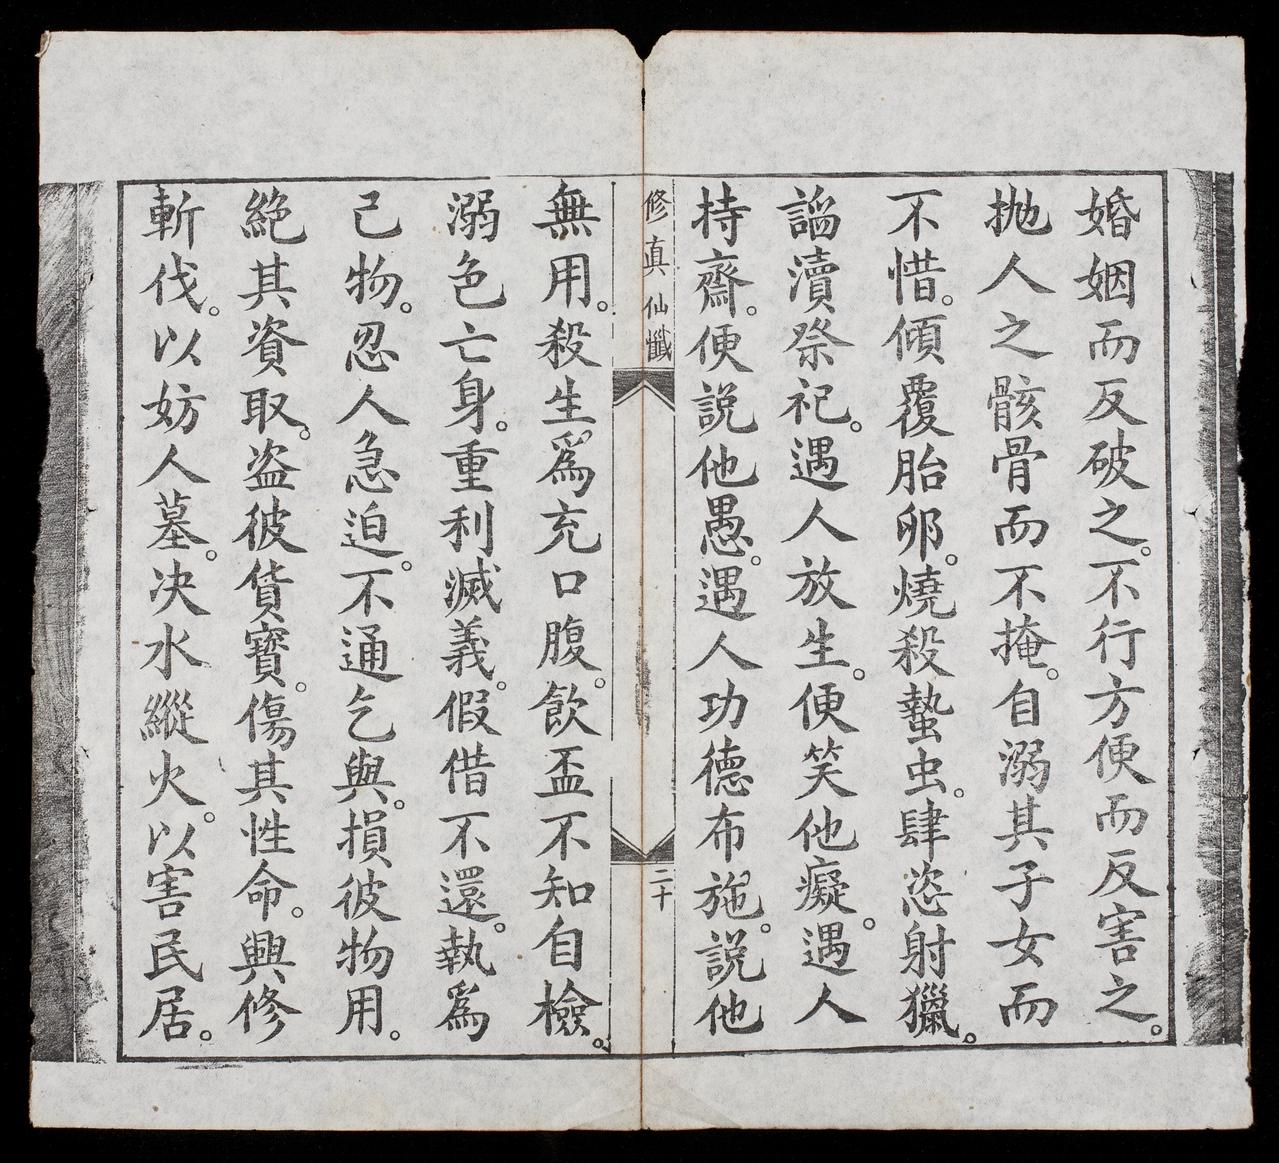 婚姻而反破之。不行方便而反害之。
抛人之骸骨而不掩。自溺其子女而
不惜。傾覆胎卵。燒殺蟄虫。肆恣射獵。
謟瀆祭祀。遇人放生。便笑他癡。遇人
持齋。便説他愚。遇人功德布施。説他
修真仙懺
二十
無用。殺生爲充口腹。飲盃不知自檢。
溺色亡身。重利滅義。假借不還。執爲
己物。忍人急迫。不通乞與。損彼物用。
絕其資取。盗彼貨寶。傷其性命。興修
斬伐。以妨人墓。决水縱火。以害民居。